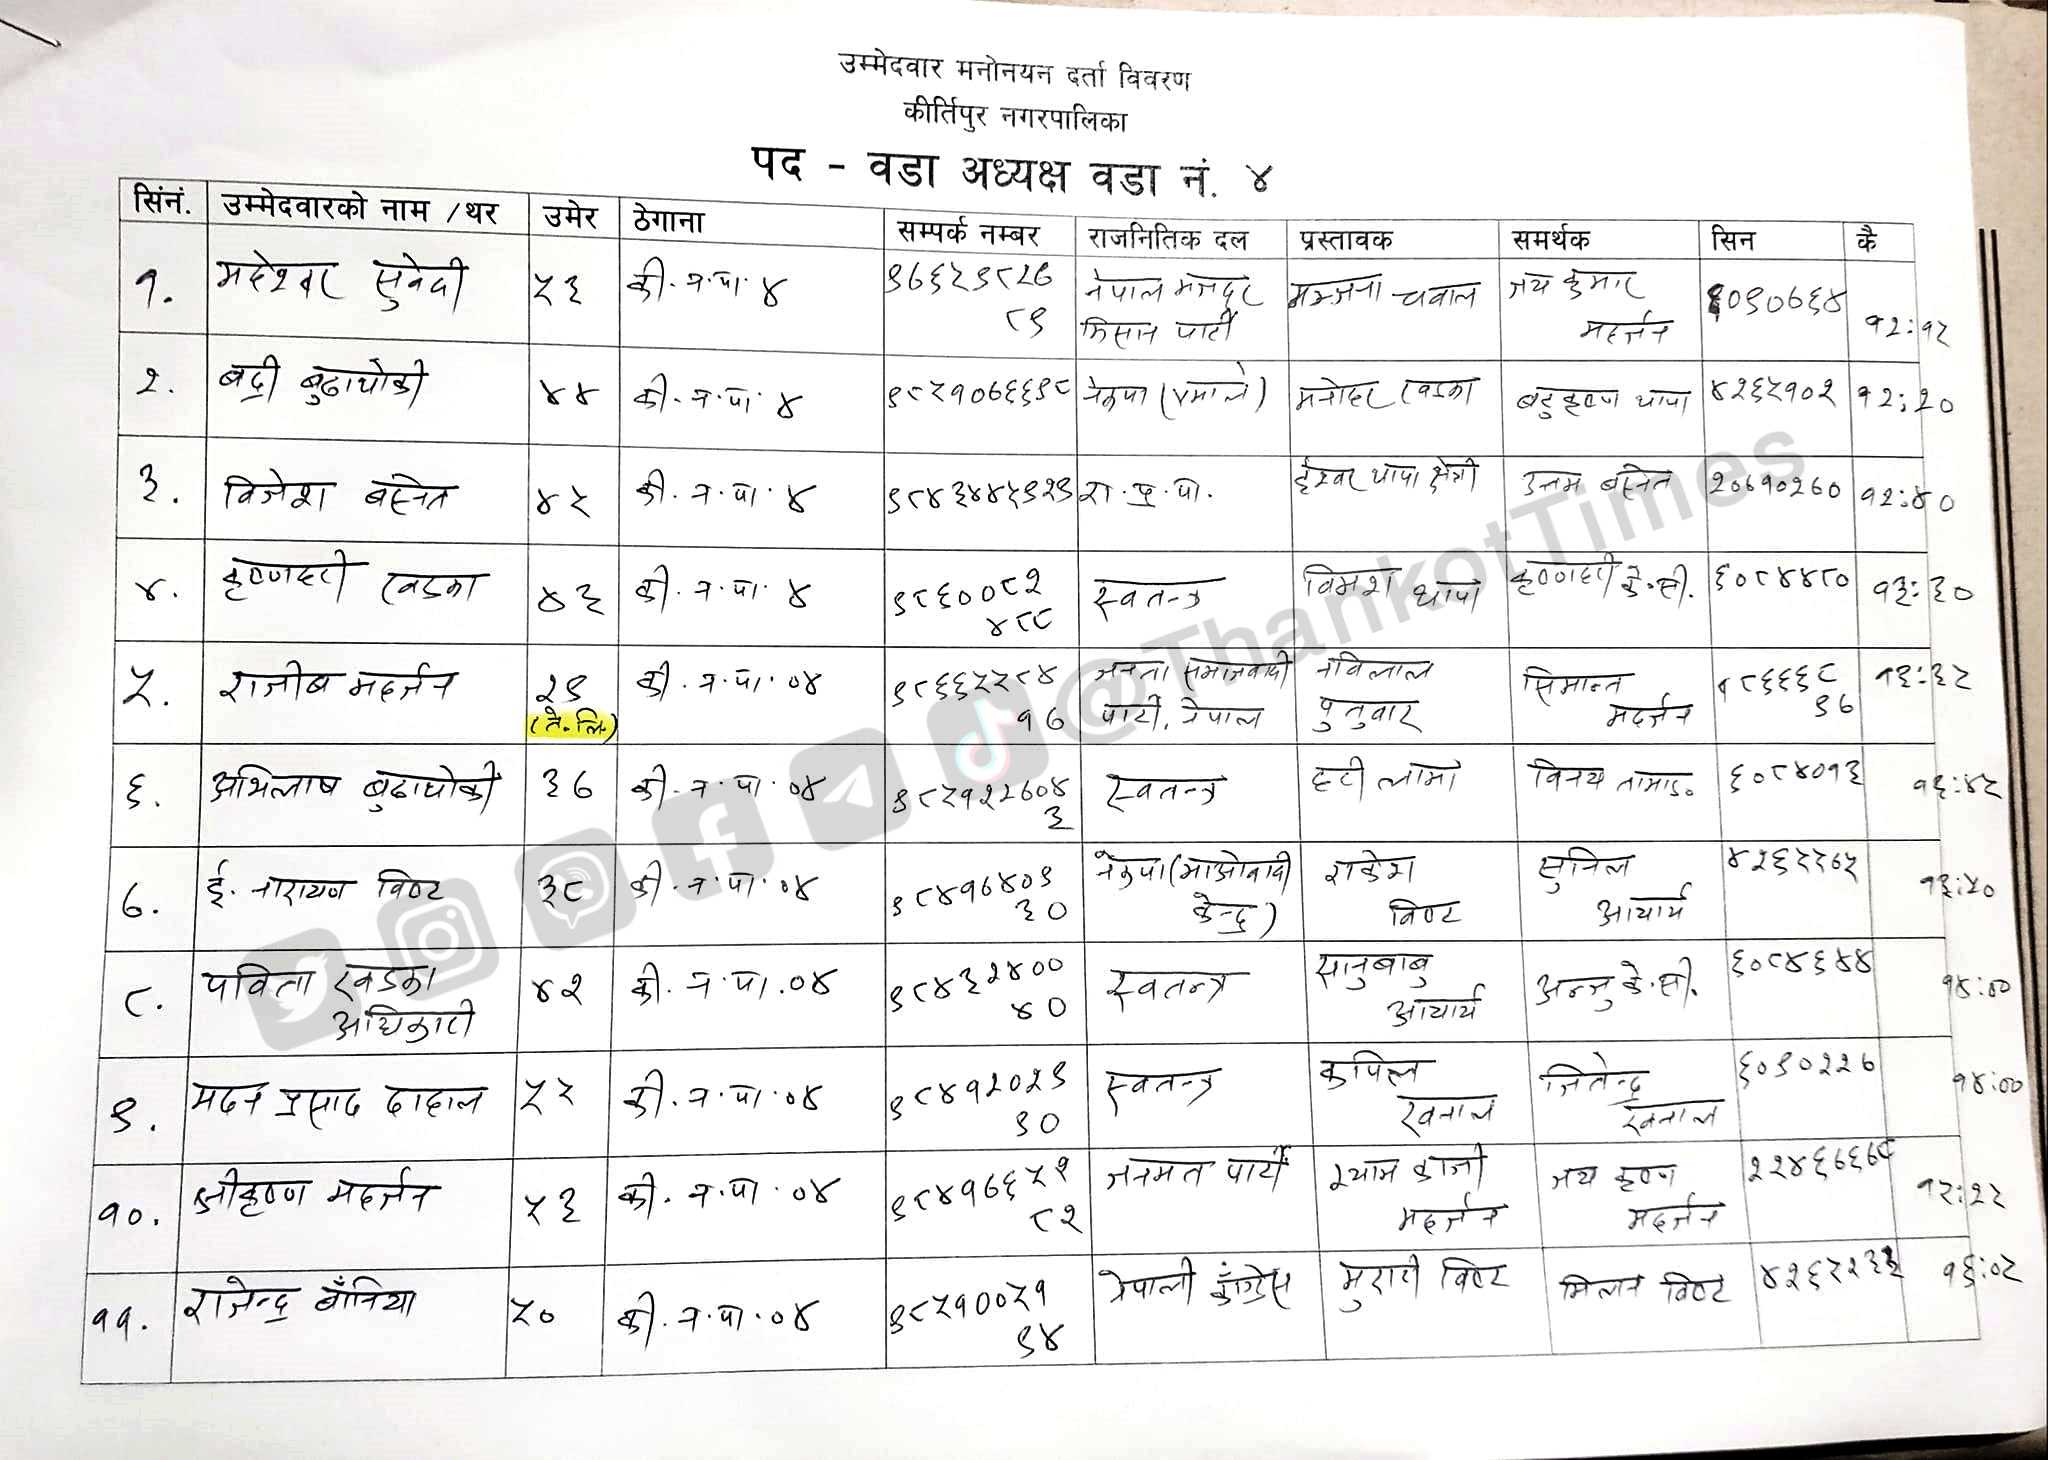 उम्मेदवार मनोनयन दर्ता विवरण
कीर्तिपुर नगरपालिका
पद - वडा अध्यक्ष वडा नं. ४
सिंनं. उम्मेदवारको नाम /थर उमेर ठेगाना सम्पर्क नम्बर राजनितिक दल प्रस्तावक समर्थक सिन कै
१. महेश्वर सुवेदी ५३ की.न.पा ४ नेपाल मजदुर किसान पार्टी जय कुमार महर्जन ६०९०७६४ १२:१५
२. बद्री बुढाथोकी ४४ की.न.पा ४ ९८५१०७६६९८ नेकपा (एमाले) मनोहर खड्का थापा ४२६५१०२ १२:२०
३. विजेश बस्नेत ४५ की.न.पा. ४ ९८४३४४५९२९ रा.प्र.पा. ईश्वर थापा क्षेत्री उत्तम बस्नेत २०६१०२६० १२:४०
४. कृष्णहरी खड्का ४३ की.न.पा. ४ ९८६००८१ ४८८ स्वतन्त्र विमश थापा कृष्णहरी के.सी. ६०८४४८० १३:३०
५. राजीब महर्जन २९ (ते.लि.) की.न.पा.०४ ९८६६५५८४ १७ जनता समाजवादी पार्टी, नेपाल नविलाल पुतुवार सिमान्त महर्जन १८६६६८ ९७ १३:३५
६. अभिलाष बुढाथोकी ३७ की.न.पा.०४ ९८५१२२७०४ ३ स्वतन्त्र हरी लामा विनय तामाङ ६०८४०१३ १३:४५
७. ई. नारायण विष्ट ३८ की.न.पा.०४ ९८४१७४०९ ३० नेकपा (माओवादी केन्द्र) राकेश विष्ट सुनिल आचार्य ४२६५५७५ १३:५०
८. पविता खड्का अधिकारी ४२ की.न.पा.०४ ९८४३२४०० ४० स्वतन्त्र सानुबाबु आचार्य अन्जु के.सी. ६०८४६४४ १४:००
९. मदन प्रसाद दाहाल ५५ की.न.पा.०४ ९८४१२०२९ ९० स्वतन्त्र कपिल खनाल जितेन्द्र खनाल ६०९०२२७ १४:००
१०. श्रीकृष्ण महर्जन ५३ की.न.पा.०४ ९८४१७६५२ ८२ जनमत पार्टी श्याम काजी महर्जन जय कृष्ण महर्जन १५:२५
११. राजेन्द्र बाँनिया ५० की.न.पा.०४ ९८५१००५१ ९४ नेपाली काँग्रेस मुरारी विष्ट मिलन विष्ट १६:०५
@ThankotTimes